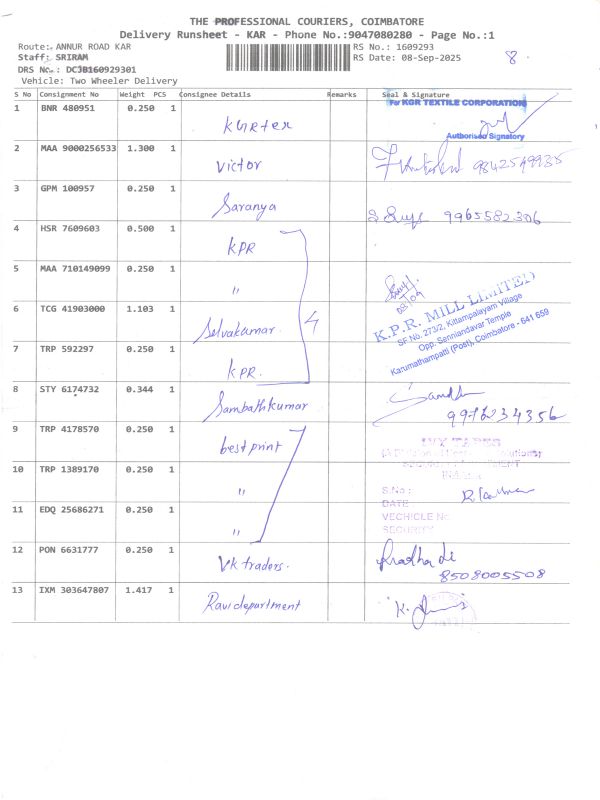 THE PROFESSIONAL COURIERS, COIMBATORE
Delivery Runsheet - KAR - Phone No.:9047080280 - Page No.:1
Route: ANNUR ROAD KAR
RS No.: 1609293
Staff: SRIRAM
RS Date: 08-Sep-2025
8
DRS No.: DCJB160929301
Vehicle: Two Wheeler Delivery
S No Consignment No Weight PCS Consignee Details Remarks Seal & Signature
1 BNR 480951 0.250 1 KGRtex
For KGR TEXTILE CORPORATION
Authorised Signatory
2 MAA 9000256533 1.300 1 Victor
3 GPM 100957 0.250 1 Saranya 9965582306
4 HSR 7609603 0.500 1 KPR
5 MAA 710149099 0.250 1 "
08/09
4
6 TCG 41903000 1.103 1 Selvakumar.
K.P.R. MILL LIMITED
SF No. 273/2, Kittampalayam Village
Opp. Senniandavar Temple
Karumathampatti (Post), Coimbatore - 641 659
7 TRP 592297 0.250 1 KPR.
8 STY 6174732 0.344 1 Sambathkumar
9976234356
9 TRP 4178570 0.250 1 best print
IVY TAPES
10 TRP 1389170 0.250 1 "
S.No :
DATE
11 EDQ 25686271 0.250 1 "
VECHICLE No
SECURITY
12 PON 6631777 0.250 1 VK traders.
8508005508
13 IXM 303647807 1.417 1 Ravi department